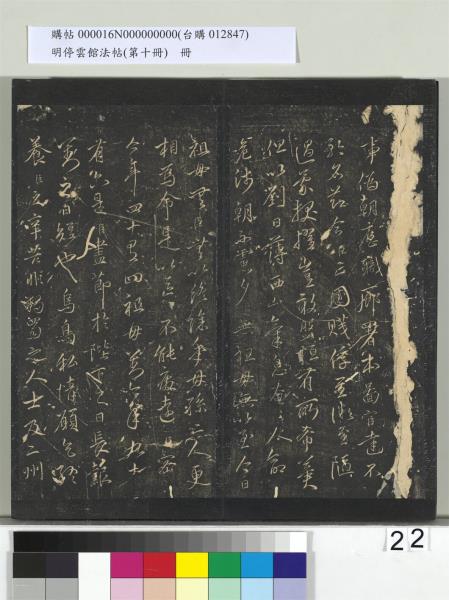 購帖 000016N000000000(台購 012847)
明停雲館法帖(第十冊) 冊
事偽朝歷職郎署本圖宦達不
矜名節今臣亡國賤俘至微至陋
過蒙拔擢豈敢盤桓有所希冀
但以劉日薄西山氣息奄奄人命
危淺朝不慮夕臣無祖母無以至今日
祖母無臣無以終餘年母孫二人更
相為命是以區區不能廢遠臣密
今年四十有四祖母劉今年九十
有六是臣盡節於陛下之日長報
劉之日短也烏鳥私情願乞終
養臣之辛苦非獨蜀之人士及二州
22